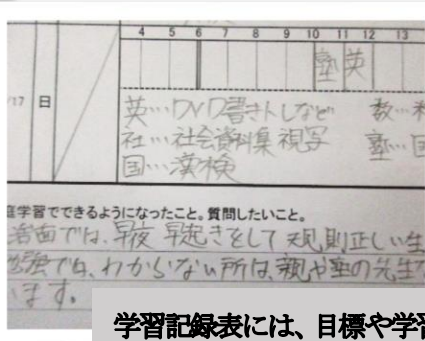 4 5 6 7 8 9 10 11 12 13
塾 英
/17 日
英…DVD書きトしなど 数…
社…社会資料集 視写 塾…国
国…漢検
庭学習でできるようになったこと。質問したいこと。
活面では、早夜 早起きをして 規則正しい生
勉強では、わからない所は、親や塾の先生
います。
学習記録表には、目標や学習